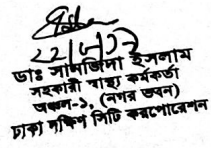 ২২/৮/১৩
ডাঃ সানজিদা ইসলাম
সহকারী স্বাস্থ্য কর্মকর্তা
অঞ্চল-১, (নগর ভবন)
ঢাকা দক্ষিণ সিটি করপোরেশন